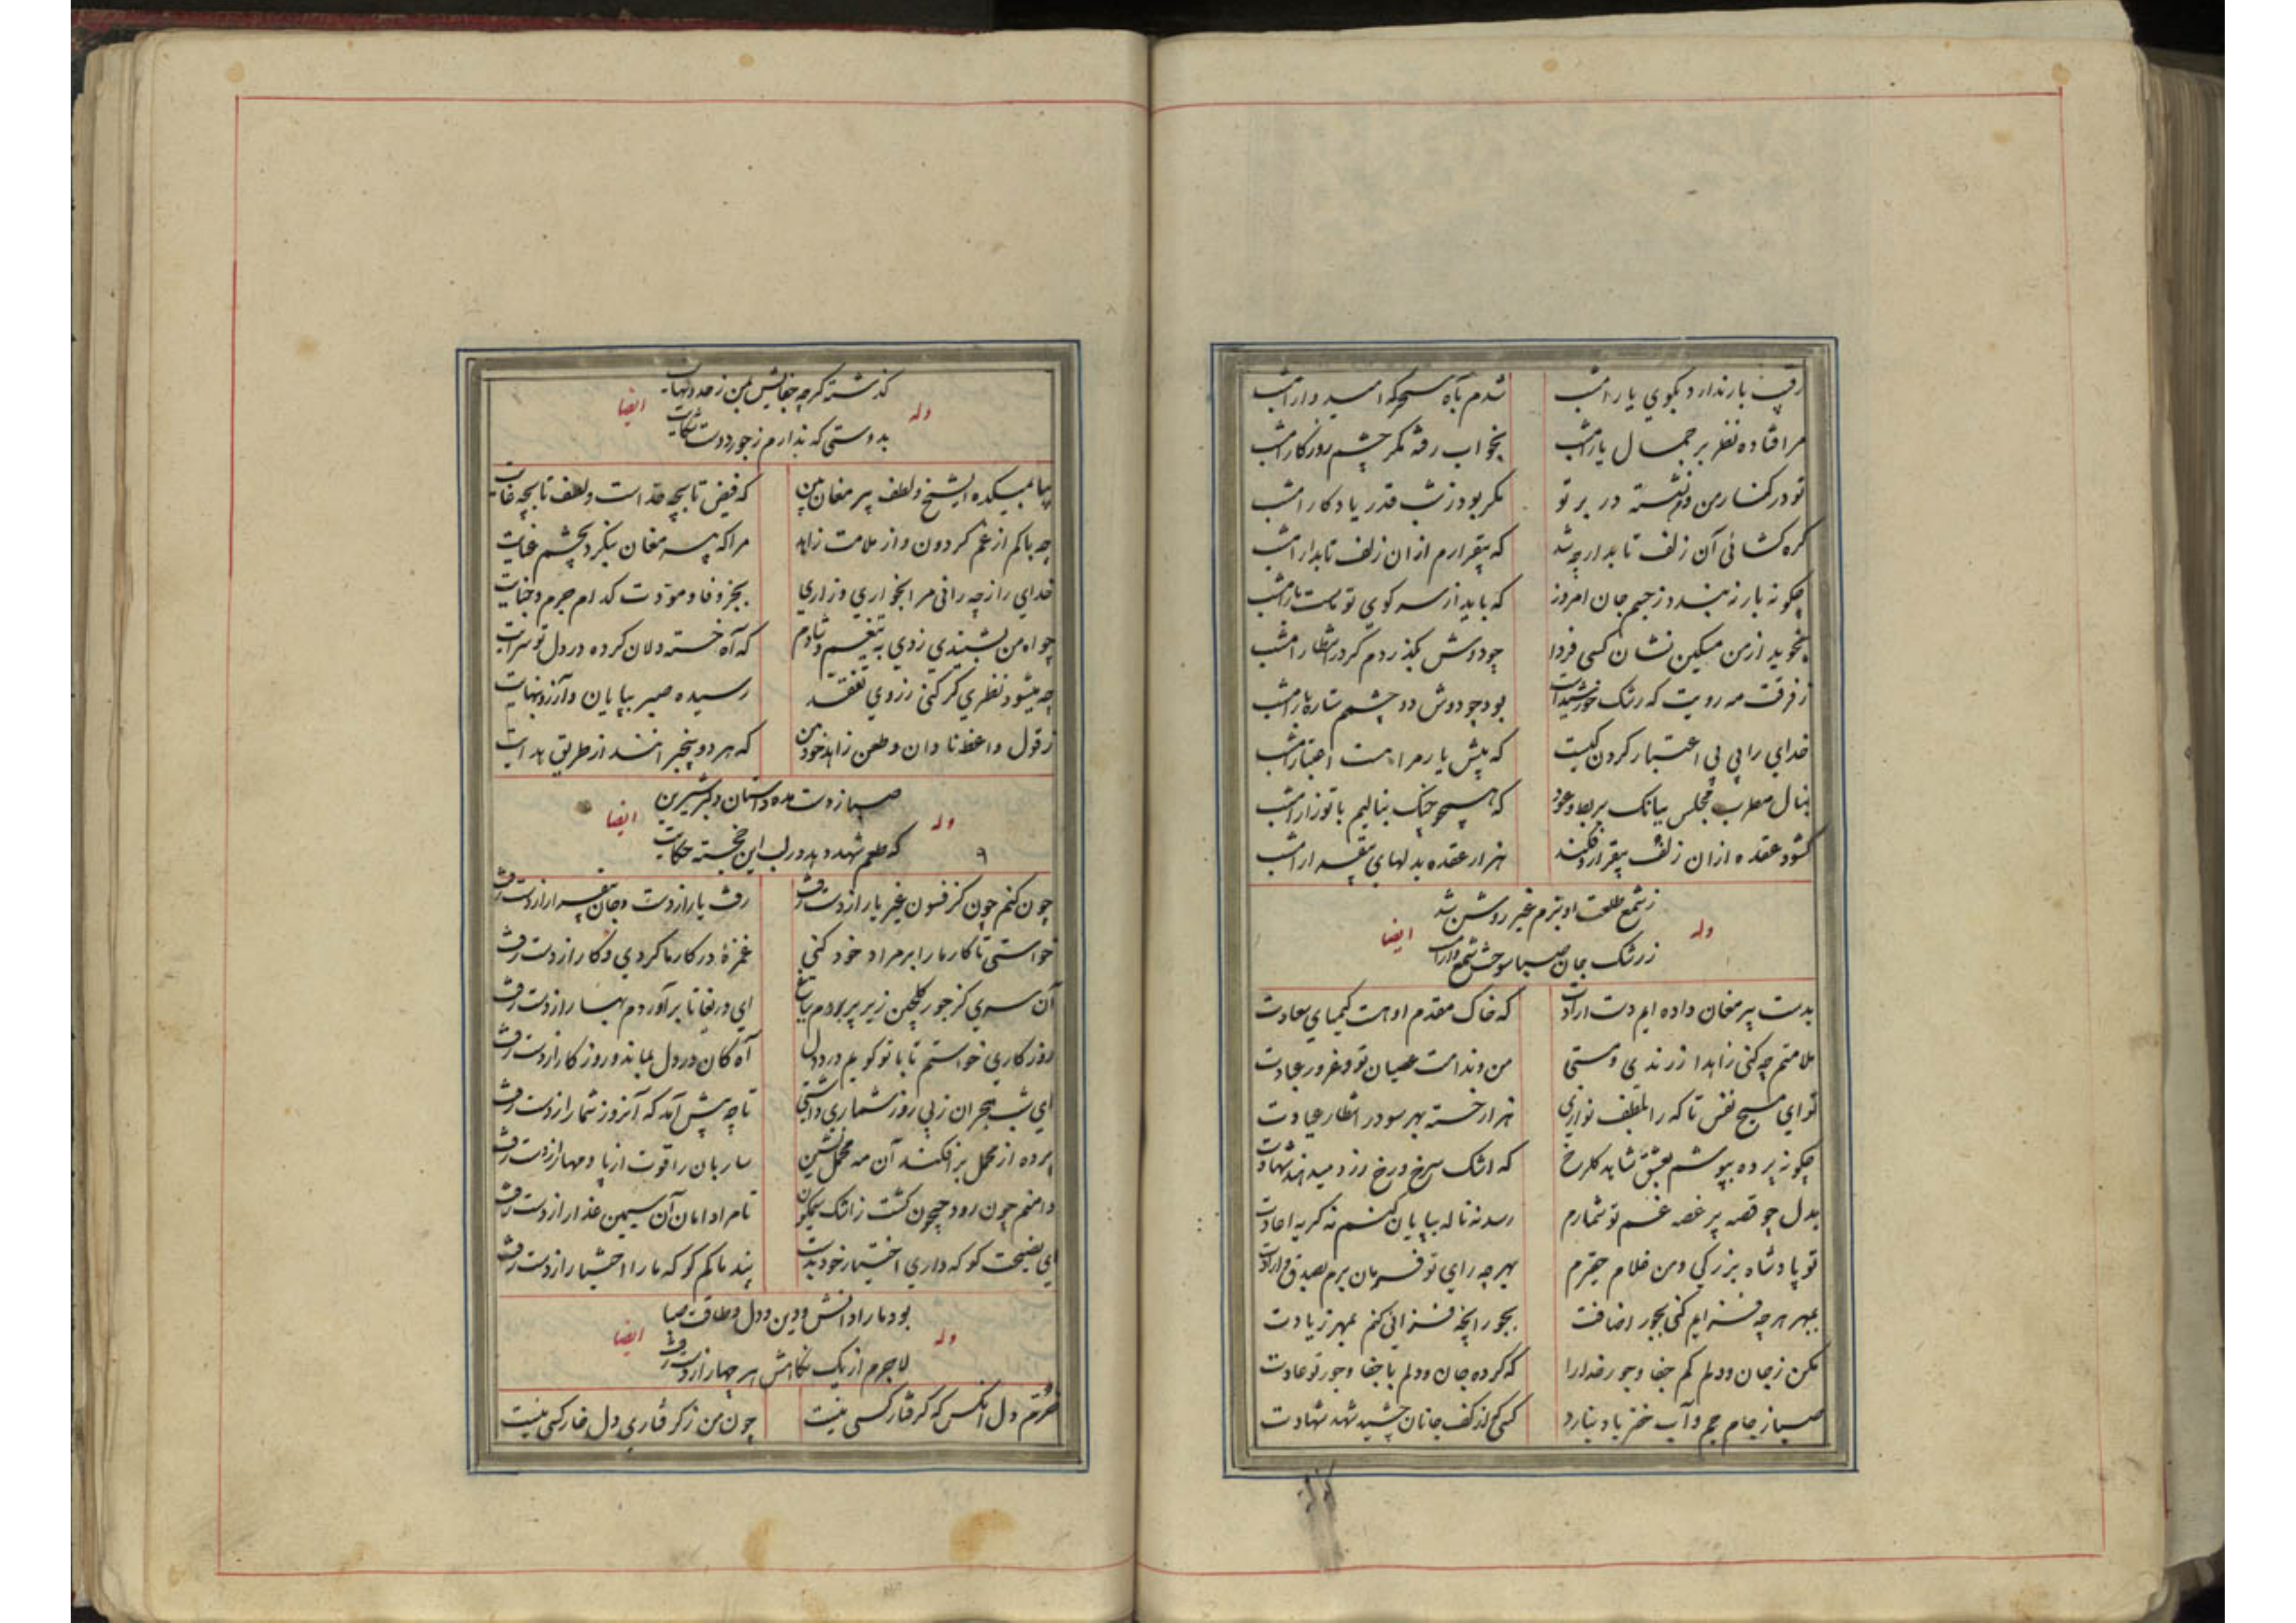 رقیب بار ندارد بکوی یار امشب شدم بآه سحرکه امیدوار امشب
مرا فتاده نظر بر جمال یار امشب بخواب رفته مکر چشم روزکار امشب
تو در کنار من و نشسته در بر تو مکر بود ز شب قدر یادکار امشب
کره کشائی آن زلف تابدار چه شد که بیقرارم ازان زلف تابدار امشب
چکونه بار نبندد ز جسم جان امروز که باید از سر کوی تو بست بار امشب
بخوید از من مسکین نشان کسی فردا چو دوش بکذردم کر در انتظار امشب
ز فرقت مه رویت که رشک خورشید است بود چو دوش دو چشمم ستاره بار امشب
خدای را پی بی اعتبار کردن کیست که پیش یار مرا هست اعتبار امشب
بنال مطرب مجلس ببانک بربط و عود که همچو چنک بنالیم با تو زار امشب
کشود عقده ازان زلف بیقرار و فکند هزار عقده بدلهای بیقرار امشب
وله ز شمع طلعت او بزم غیر روشن شد ایضا
ز رشک جان صبا سوخت شمع وار امشب
بدست پیر مغان داده ایم دست ارادت که خاک مقدم او هست کیمیای سعادت
ملامتم چه کنی زاهدا ز رندی و مستی من و ندامت عصیان تو و غرور عبادت
تو ای مسیح نفس تا که را بلطف نوازی هزار خسته بهر سو در انتظار عیادت
چکونه پرده بپوشم بعشق شاهد کلرخ که اشک سرخ و رخ زرد میدهند شهادت
بدل چو قصه پر غصه غم تو شمارم رسد نه ناله بپایان کنم نه کریه اعادت
تو پادشاه بزرکی و من غلام حقیرم بهر چه رای تو فرمان برم بصدق و ارادت
بمهر هر چه فزایم کنی بجور اضافت بجور انچه فزائی کنم بمهر زیادت
مکن ز جان و دلم کم جفا و جور خدا را که کرده جان و دلم با جفا و جور تو عادت
صبا ز جام جم و آب خضر یاد نیارد کسی که از کف جانان چشید شهد شهادت
کذشته کرچه جفایش بمن ز حد و نهایت
وله ایضا
بدوستی که ندارم ز جور دوست شکایت
بیا بمیکده ایشیخ و لطف پیر مغان بین که فیض تا بچه حد است و لطف تا بچه غایت
چه باکم از غم کردون و از ملامت زاهد مرا که پیر مغان بنکرد بچشم عنایت
خدای را ز چه رانی مرا بخواری و زاری بجز وفا و مودت کدام جرم و جنایت
چو آه من بشنیدی زدی به تیغم و شادم که آه خسته دلان کرده در دل تو سرایت
چه میشود نظری کر کنی ز روی تفقد رسیده صبر بپایان و آرزو بنهایت
ز قول واعظ نادان و طعن زاهد خودبین که هر دو بیخبر انند از طریق هدایت
صبا ز دست مده داستان دلبر شیرین
وله ایضا
که طعم شهد دهد در لب این خجسته حکایت
۹
چون کنم چون کز فسون غیر یار از دست رفت رفت یار از دست و جان بیقرار از دست رفت
خواستی تا کار ما را بر مراد خود کنی غمزهٔ در کار ما کردی و کار از دست رفت
آن سری کز جور کلچین زیر پر بودم بباغ ای دریغا تا برآوردم بهار از دست رفت
روزکاری خواستم تا با تو کویم درد دل آه کان در دل بماند و روزکار از دست رفت
ای شب هجران ز پی روز شماری داشتی تا چه پیش آمد که آنروز شمار از دست رفت
پرده از محمل برافکند آن مه محمل نشین ساربان را قوت از پا و مهار از دست رفت
دامنم چون رود جیحون کشت ز اشک نیلکون تا مرا دامان آن سیمین عذار از دست رفت
ای نصیحت کو که داری اختیار خود بدست پند ما کم کو که ما را اختیار از دست رفت
بود ما را دانش و دین و دل و طاقت صبا
وله ایضا
لاجرم از یک نکاهش هر چهار از دست رفت
خرم دل انکس که کرفتار کسی نیست چون من ز کرفتاری دل خار کسی نیست